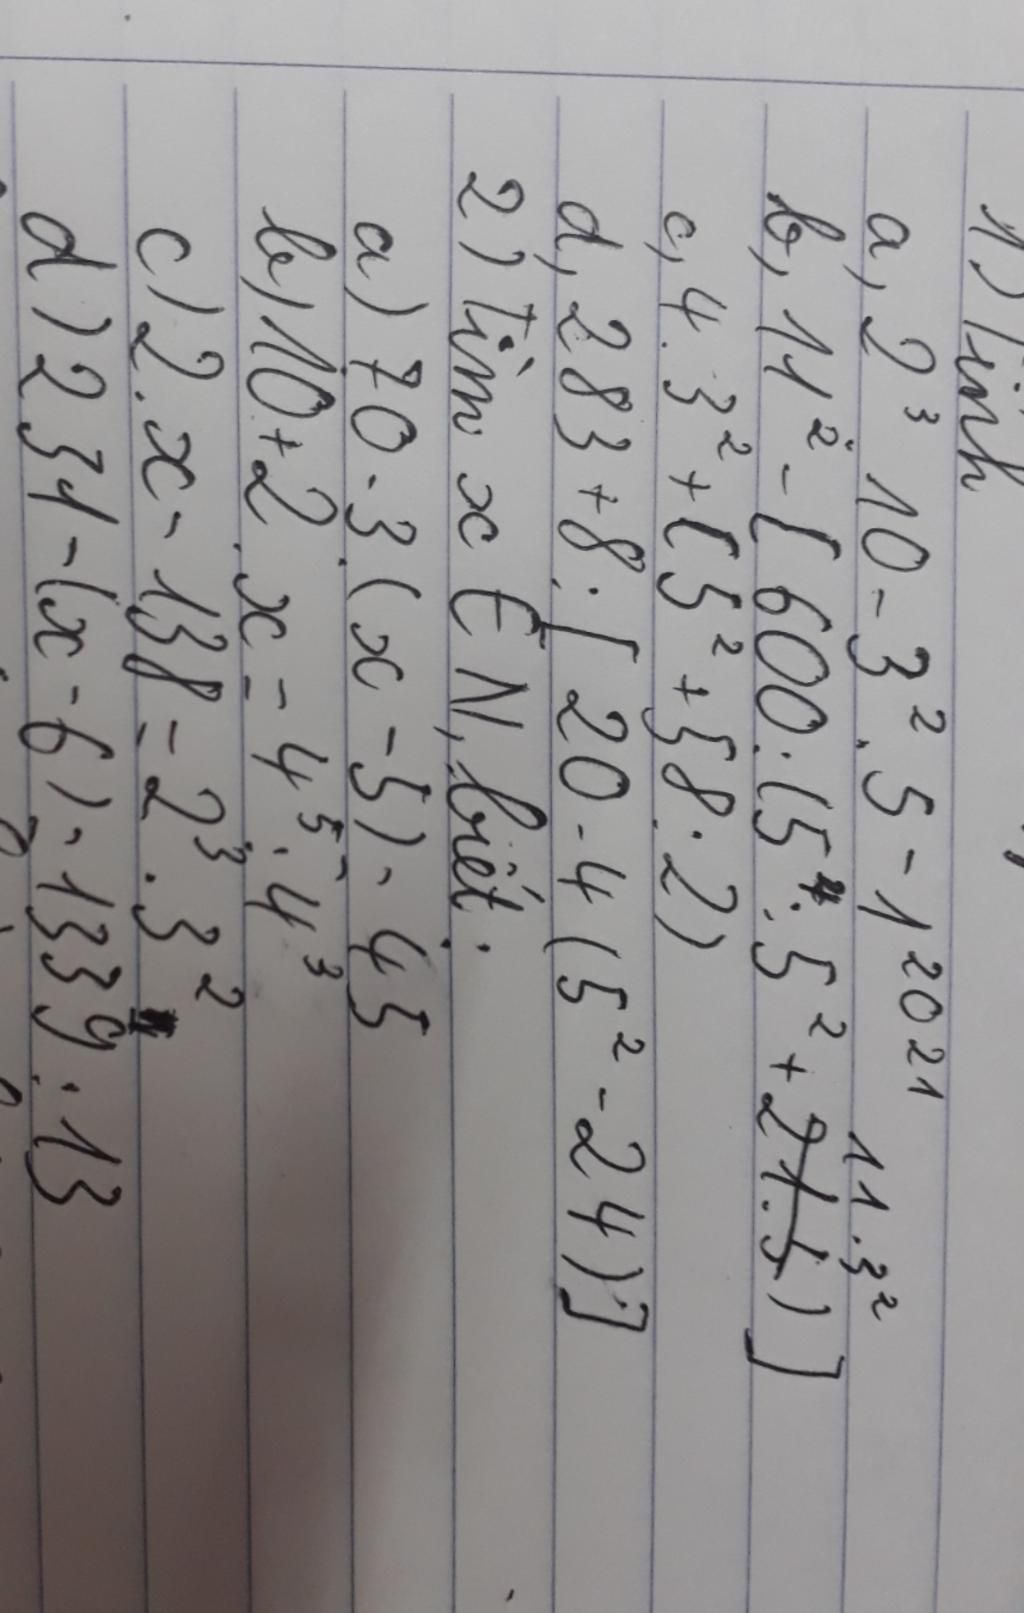 1) Tính
a, 2³ 10 - 3² . 5 - 1²⁰²¹
11.3²
b, 11² - [ 600 : (5⁴ : 5² + 21.5) ]
c, 4 . 3² + (5² + 58 : 2)
d, 283 + 8 : [ 20 - 4 (5² - 24) ]
2) Tìm x ∈ N, biết:
a) 70 - 3 (x - 5) = 45
b) 10 + 2 . x = 4⁵ : 4³
c) 2 . x - 138 = 2³ . 3²
d) 231 - (x - 6) = 1339 : 13